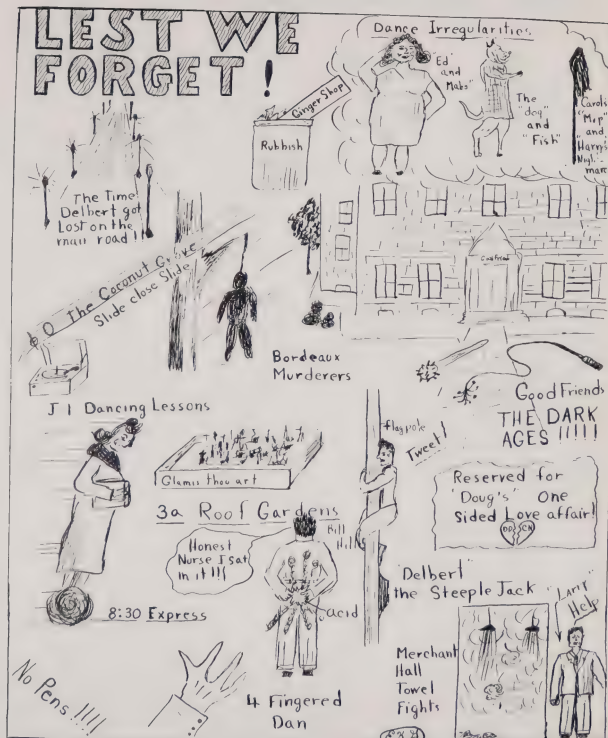 LEST WE
FORGET!
Dance Irregularities
"Ed"
and
"Mabs"
The
"dog"
and
"Fish"
Carols
"Mep"
and
Harry's
Night-
mare
Ginger Shop
Rubbish
The Time
Delbert got
Lost on the
mall road!!
The Coconut Grove
Slide close Slide
Bordeaux
Murderers
Good Friends
THE DARK
AGES !!!!!
J1 Dancing Lessons
flagpole
Tweet!
Glamis thou art
3a Roof Gardens
Reserved for
"Doug's" One
Sided Love affair!
DD CN
Honest
Nurse I sat
in it!!!
Hill
Hill
acid
8:30 Express
"Delbert"
the Steeple Jack
"Larry"
Help
Merchant
Hall
Towel
Fights
No Pens!!!!
4 Fingered
Dan